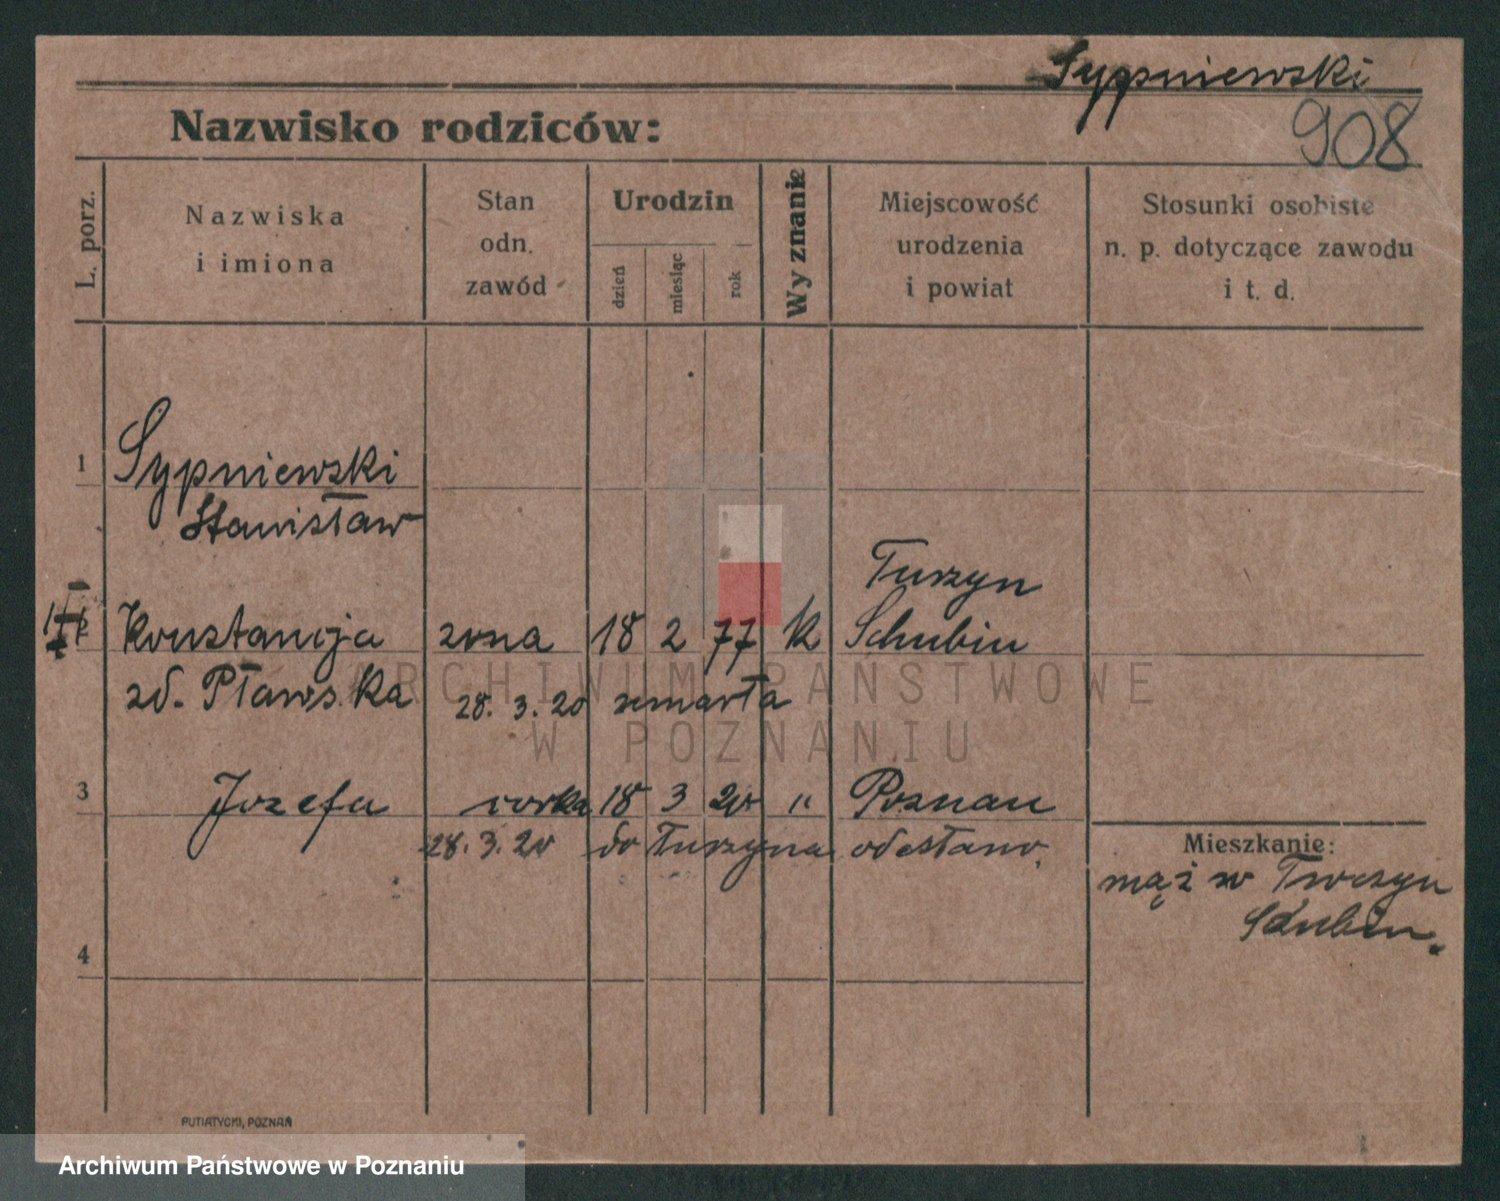 Sypniewski
Nazwisko rodziców:
908
L. porz.
Nazwiska
i imiona
Stan
odn.
zawód
Urodzin
dzień
miesiąc
rok
Wyznanie
Miejscowość
urodzenia
i powiat
Stosunki osobiste
n. p. dotyczące zawodu
i t. d.
1 Sypniewski
Stanisław
Turzyn
Konstancja zona 18 2 77 k Schubin
zd. Pławska 28. 3. 20 zmarła
3 Jozefa corka 18 3 20 " Poznan
28. 3. 20 do Turzyna odesłano.
Mieszkanie:
mąż w Turczyn
Schubin.
4
PUTIATYCKI, POZNAŃ
ARCHIWUM PAŃSTWOWE
W POZNANIU
Archiwum Państwowe w Poznaniu